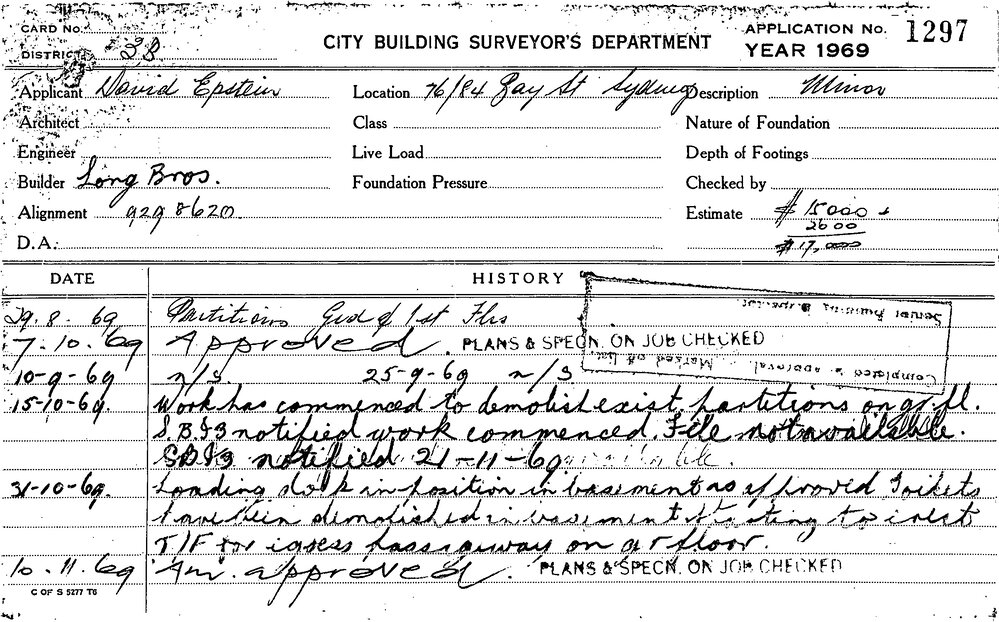 CARD No.
DISTRICT
CITY BUILDING SURVEYOR'S DEPARTMENT
APPLICATION No. 1297
YEAR 1969
Applicant David Epstein
Location 76/84 Bay St Sydney
Description Minor
Architect
Class
Nature of Foundation
Engineer
Live Load
Depth of Footings
Builder Long Bros.
Foundation Pressure
Checked by
Alignment 929 8620.
Estimate $ 15000 +
2600
$ 17,000
D.A.
DATE
HISTORY
29.8.69 Partitions Grd & 1st Flrs
Senior Building Inspector
7.10.69 Approved. PLANS & SPECN. ON JOB CHECKED
Completed & approval. Marked off list
10-9-69 n/s. 25-9-69 n/s
15-10-69. Work has commenced to demolish exist. partitions on gr. fl.
S.B.I3 notified work commenced. File not available.
SBI3 notified 21-11-69
31-10-69. Loading dock in position in basement as approved Toilets
have been demolished in basement Starting to erect
T/F for egress passageway on gr floor.
10.11.69 Am. approved. PLANS & SPECN. ON JOB CHECKED
C OF S 5277 T6